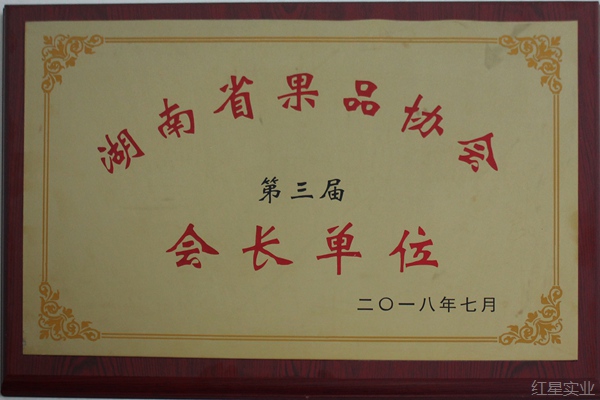 湖南省果品协会
第三届
会长单位
二〇一八年七月
红星实业